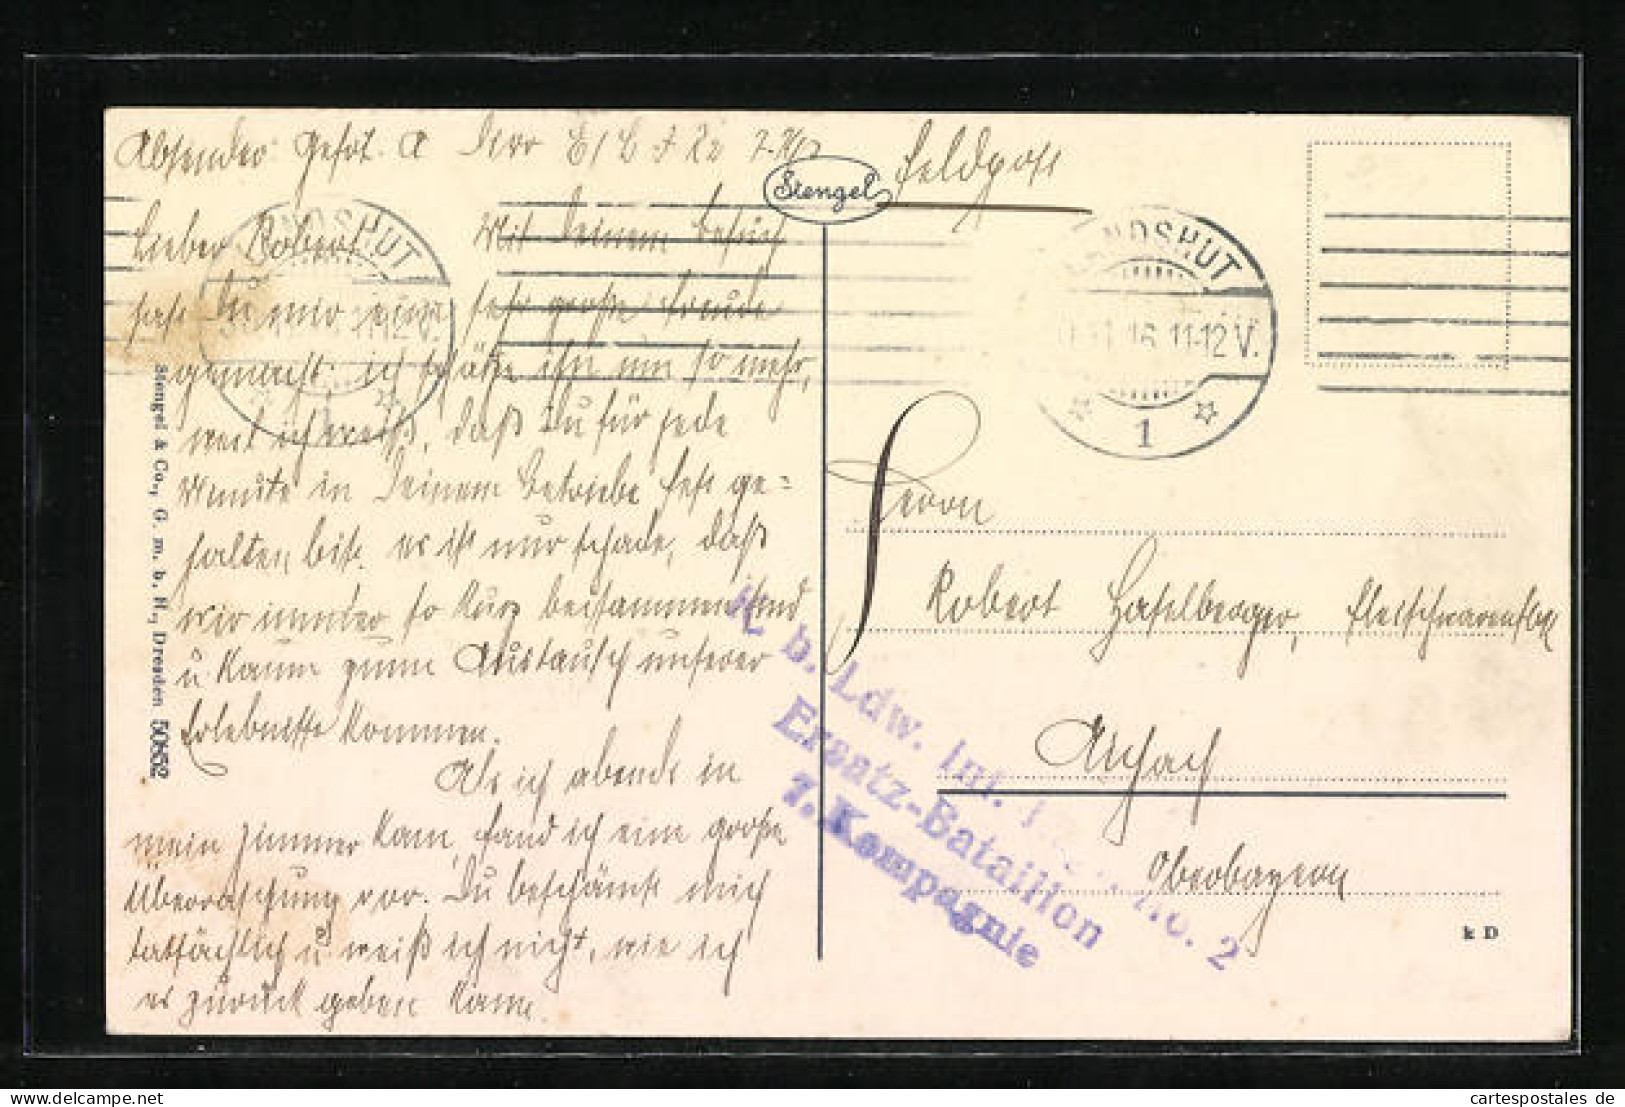 Absender Gefrt. A
Stengel
Feldpost
Lieber Robert Mit Deinem Besuch
hast Du mir eine sehr große Freude
gemacht ich schätze ihn um so mehr,
weil ich weiß, daß Du für jede
Minute in Deinem Betriebe fest ge=
halten bist. Es ist nur schade, daß
wir immer so kurz beisammen sind
u kaum zum Austausch unserer
Erlebnisse kommen.
Als ich abends in
mein Zimmer kam, fand ich eine große
Überraschung vor. Du beschämst mich
tatsächlich u weiß ich nicht, wie ich
es zurück geben kann.
Stengel & Co., G. m. b. H., Dresden 50852
LANDSHUT
11-12V.
1
LANDSHUT
16. 11-12V.
1
Herrn
Robert Haselberger,
Aichach
Oberbayern
K. b. Ldw. Inf. No. 2
Ersatz-Bataillon
7. Kompagnie
k D
cartespostales.de